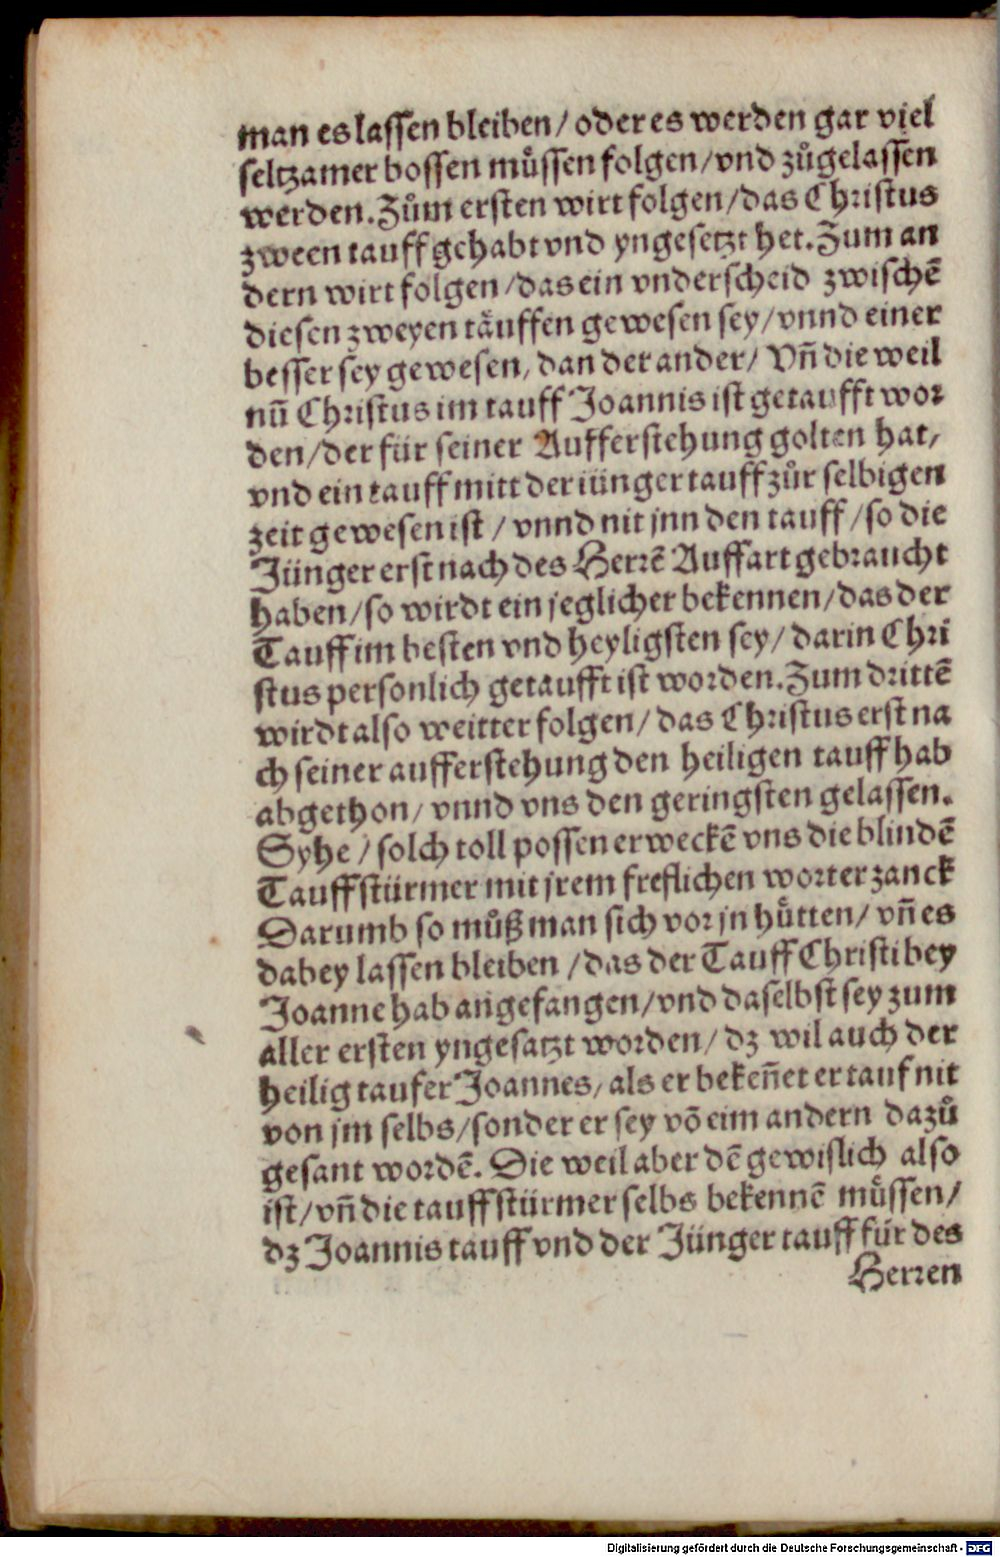 man es lassen bleiben/ oder es werden gar viel
seltzamer bossen muͤssen folgen/ vnd zuͦgelassen
werden. Zuͦm ersten wirt folgen/ das Christus
zween tauff gehabt vnd yngesetzt het. Zum an
dern wirt folgen/ das ein vnderscheid zwischē
diesen zweyen taͤuffen gewesen sey/ vnnd einer
besser sey gewesen, dan der ander/ Vñ die weil
nū Christus im tauff Joannis ist getaufft wor
den/ der für seiner Aufferstehung golten hat,
vnd ein tauff mitt der iünger tauff zuͦr selbigen
zeit gewesen ist / vnnd nit jnn den tauff/ so die
Jünger erst nach des Herrē Auffart gebraucht
haben/ so wirdt ein jeglicher bekennen/ das der
Tauff im besten vnd heyligsten sey/ darin Chri
stus personlich getaufft ist worden. Zum drittē
wirdt also weitter folgen/ das Christus erst na
ch seiner aufferstehung den heiligen tauff hab
abgethon/ vnnd vns den geringsten gelassen.
Syhe / solch toll possen erweckē vns die blindē
Tauffstürmer mit jrem freflichen worter zanck
Darumb so muͦß man sich vor jn huͤtten/ vñ es
dabey lassen bleiben / das der Tauff Christi bey
Joanne hab angefangen/ vnd daselbst sey zum
aller ersten yngesatzt worden/ dz wil auch der
heilig taufer Joannes, als er bekeñet er tauf nit
von jm selbs/ sonder er sey vō eim andern dazuͦ
gesant wordē. Die weil aber dē gewislich also
ist/ vñ die tauffstürmer selbs bekennē muͤssen/
dz Joannis tauff vnd der Jünger tauff für des
Herren
Digitalisierung gefördert durch die Deutsche Forschungsgemeinschaft - DFG